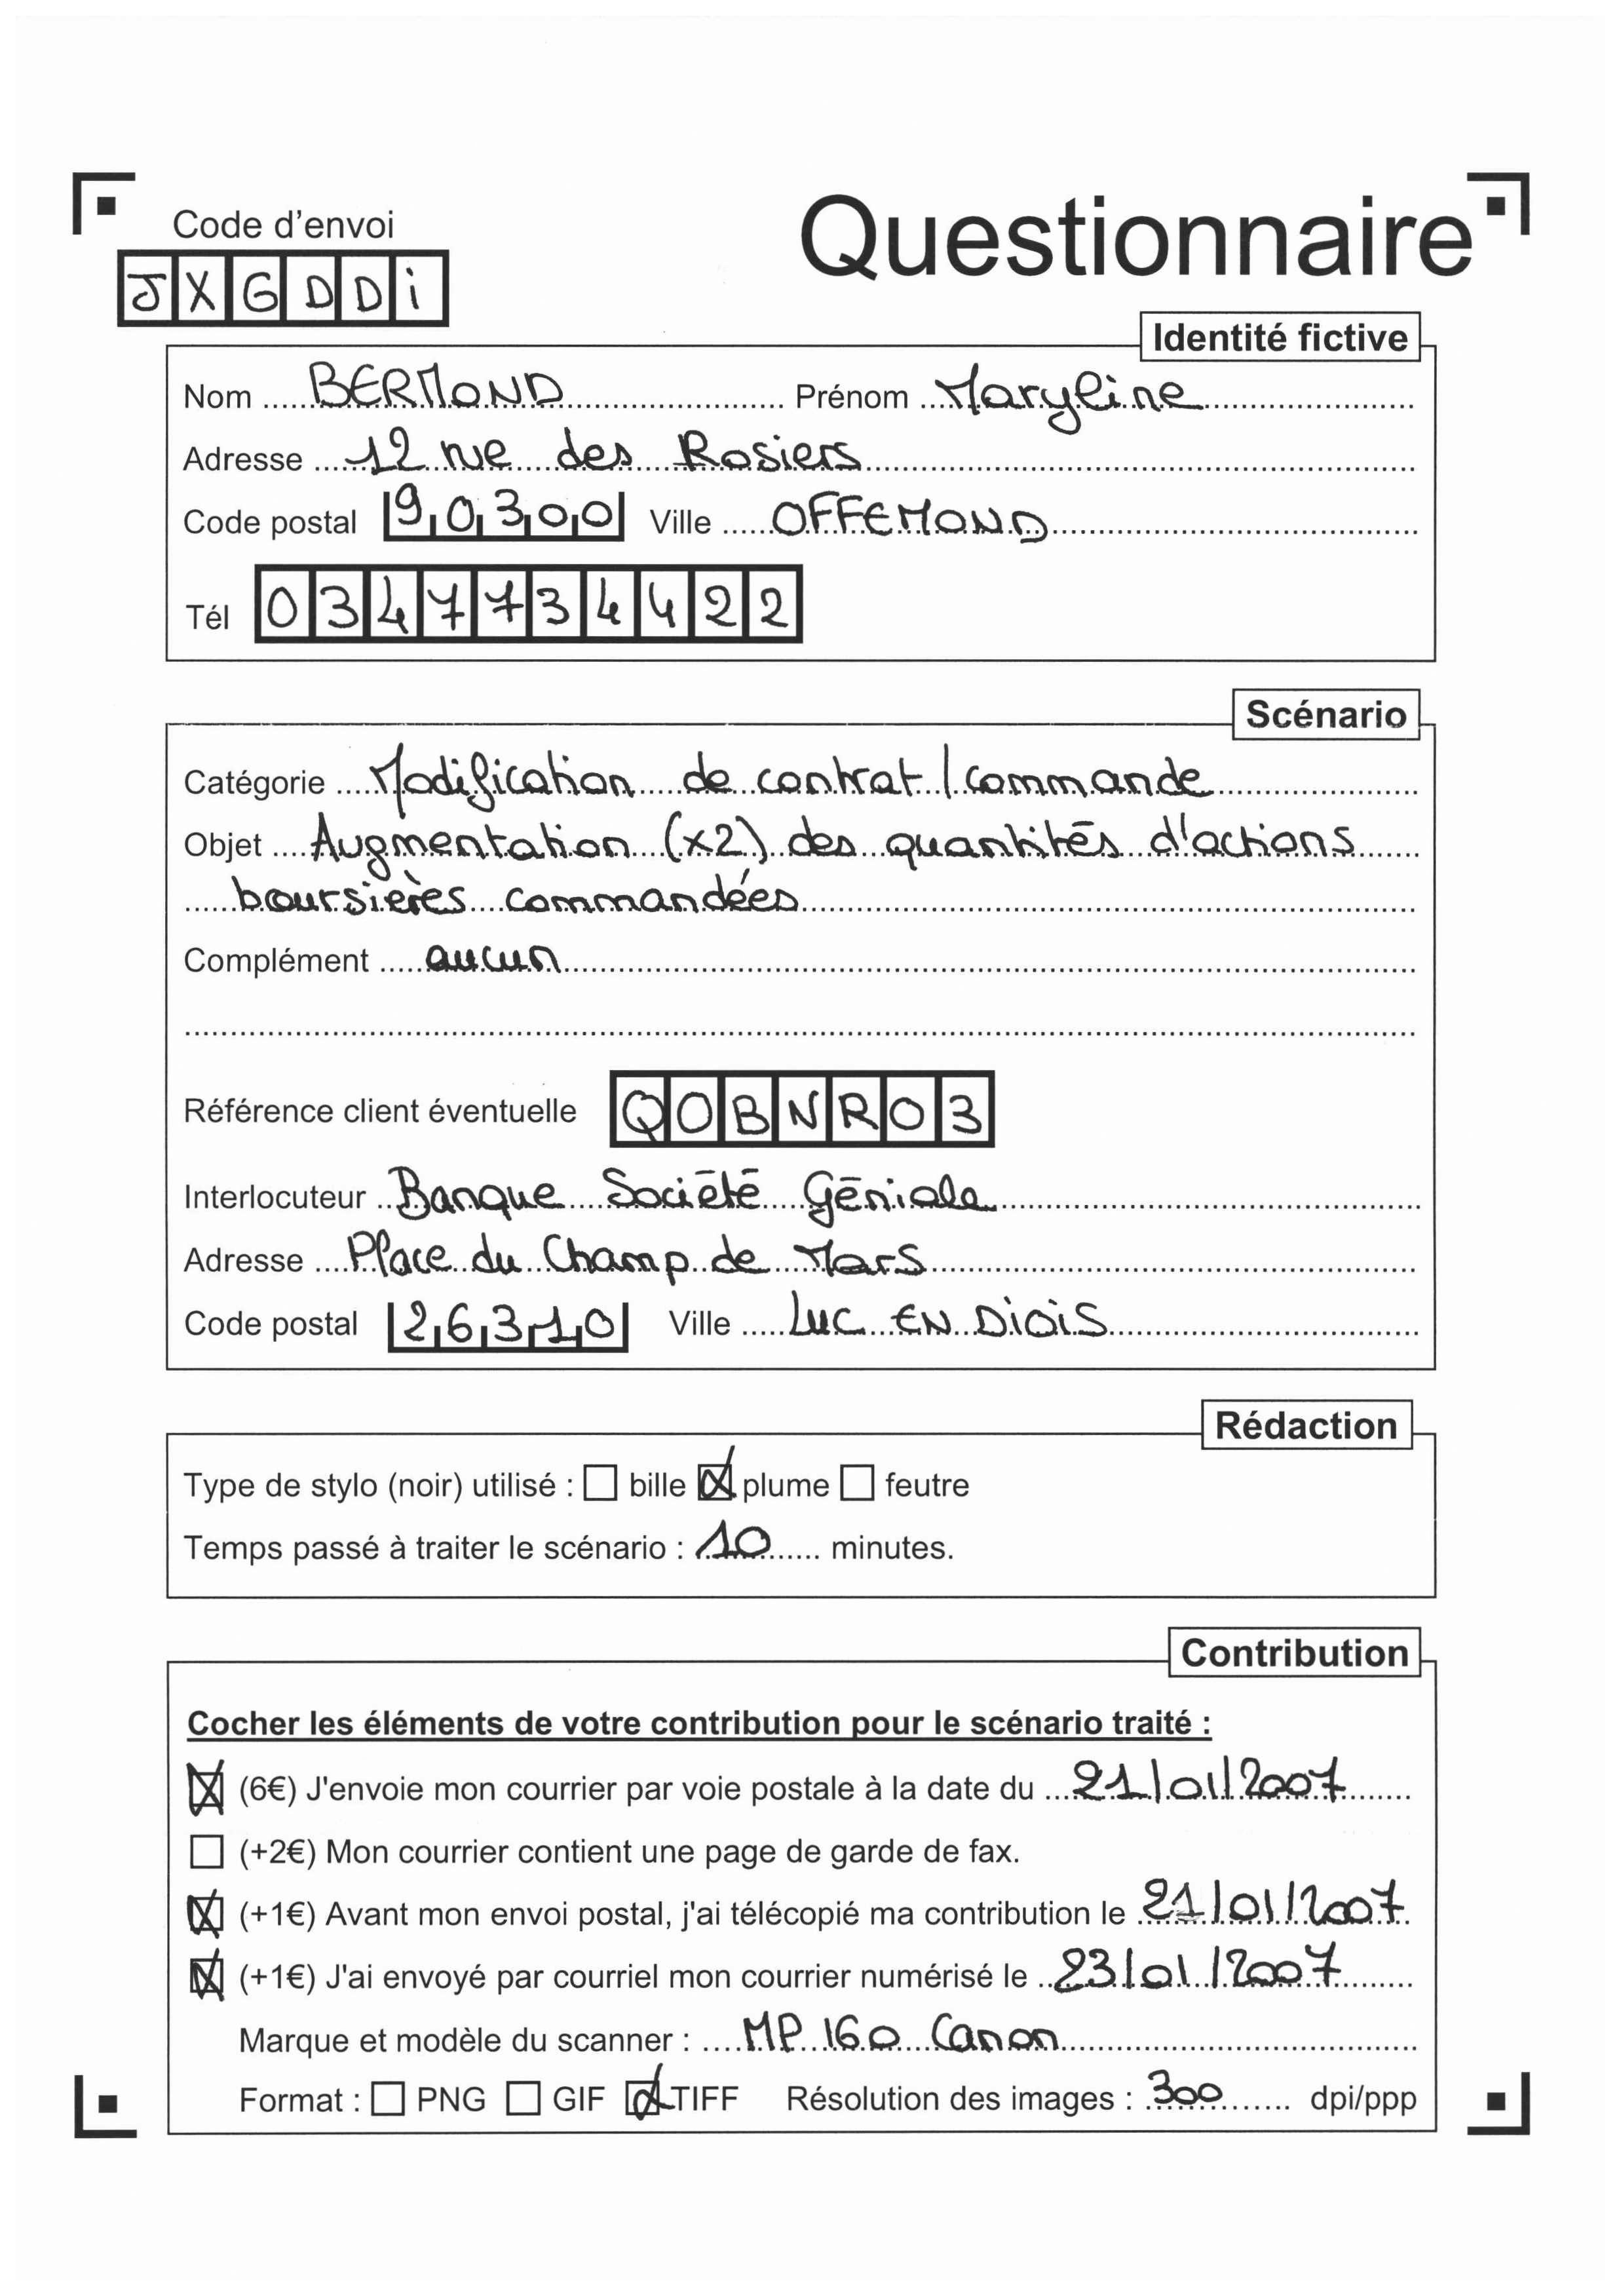 Code d'envoi
Questionnaire
JXGDDi
Identité fictive
Nom BERMOND Prénom Maryline
Adresse 12 rue des Rosiers
Code postal 90300 Ville OFFEMOND
Tél 0347734422
Scénario
Catégorie Modification de contrat / commande
Objet Augmentation (x2) des quantités d'actions
boursières commandées
Complément aucun
Référence client éventuelle QOBNRO3
Interlocuteur Banque Société Géniale
Adresse Place du Champ de Mars
Code postal 26310 Ville Luc EN DiOiS
Rédaction
Type de stylo (noir) utilisé : ☐ bille ☒ plume ☐ feutre
Temps passé à traiter le scénario : 10 minutes.
Contribution
Cocher les éléments de votre contribution pour le scénario traité :
☒ (6€) J'envoie mon courrier par voie postale à la date du 21/01/2007
☐ (+2€) Mon courrier contient une page de garde de fax.
☒ (+1€) Avant mon envoi postal, j'ai télécopié ma contribution le 21/01/2007
☒ (+1€) J'ai envoyé par courriel mon courrier numérisé le 23/01/2007
Marque et modèle du scanner : MP 160 Canon
Format : ☐ PNG ☐ GIF ☒ TIFF Résolution des images : 300 dpi/ppp